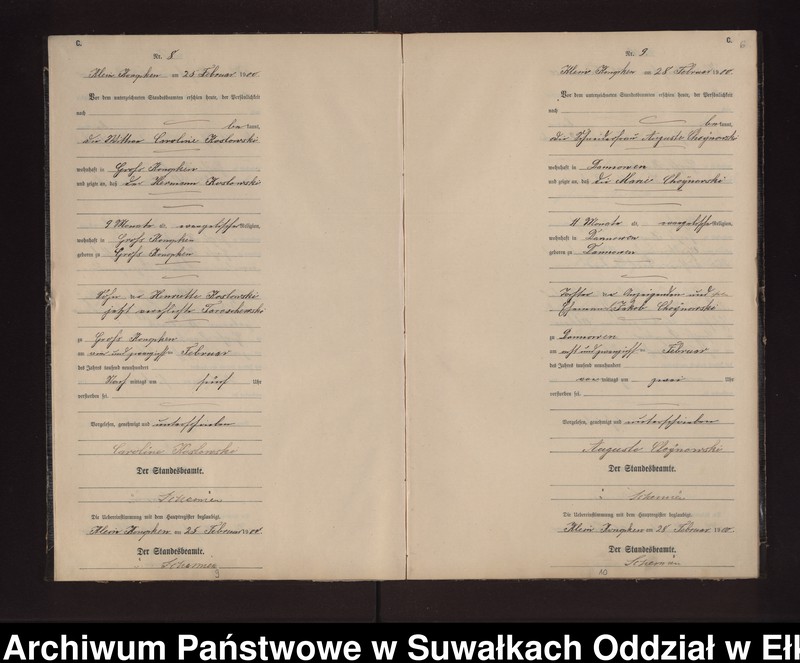 C.
Nr. 8
Klein Rompken am 25 Februar 1900.
Vor dem unterzeichneten Standesbeamten erschien heute, der Persönlichkeit
nach
be kannt,
die Wittwe Caroline Koslowski
wohnhaft in Groß Rompken
und zeigte an, daß der Hermann Koslowski
9 Monate evangelischer Religion,
wohnhaft in Groß Rompken
geboren zu Groß Rompken
Sohn der Henriette Koslowski
jetzt verehelichte
zu Groß Rompken
am undzwanzigsten Februar
des Jahres tausend neunhundert
Nach mittags um fünf Uhr
verstorben sei.
Vorgelesen, genehmigt und unterschrieben
Caroline Koslowski
Der Standesbeamte.
Die Uebereinstimmung mit dem Hauptregister beglaubigt.
Klein Rompken am 25 Februar 1900.
Der Standesbeamte.
9
C.
Nr. 9.
Klein Rompken am 28 Februar 1900.
Vor dem unterzeichneten Standesbeamten erschien heute, der Persönlichkeit
nach
be kannt,
die Schneiderfrau Auguste Choÿnowski
wohnhaft in Dannowen
und zeigte an, daß die Marie Choÿnowski
11 Monate evangelischer Religion,
wohnhaft in Dannowen
geboren zu Dannowen
Tochter der Anzeigenden und
Ehemann Jakob Choÿnowski
zu Dannowen
am acht und zwanzigsten Februar
des Jahres tausend neunhundert
vor mittags um zwei Uhr
verstorben sei.
Vorgelesen, genehmigt und unterschrieben
Auguste Choÿnowski
Der Standesbeamte.
Die Uebereinstimmung mit dem Hauptregister beglaubigt.
Klein Rompken am 28 Februar 1900.
Der Standesbeamte.
10
Archiwum Państwowe w Suwałkach Oddział w Ełk